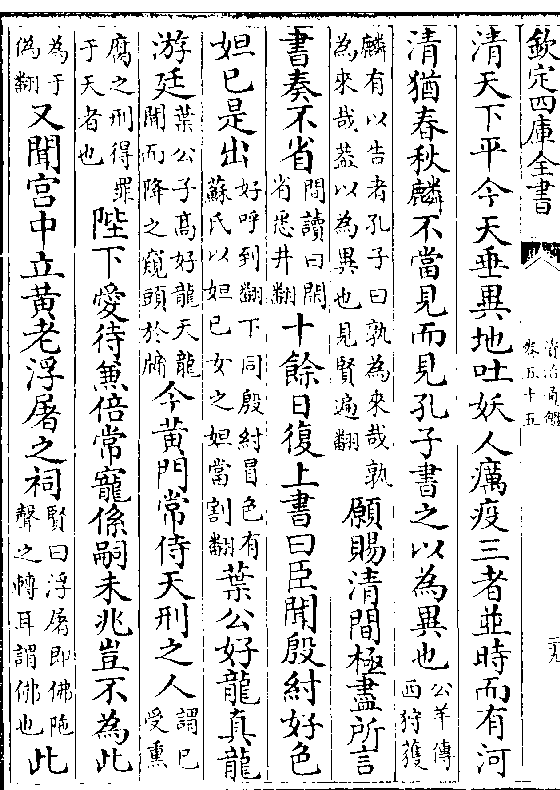 欽定四庫全書
資治通鑑
卷五十五
清天下平今天垂異地吐妖人癘疫三者並時而有河
清猶春秋麟不當見而見孔子書之以為異也公羊傳西狩獲
麟有以告者孔子曰孰為來哉孰為來哉葢以為異也見賢遍翻願賜清間極盡所言
書奏不省間讀曰閑省悉井翻十餘日復上書曰臣聞殷紂好色
妲已是出好呼到翻下同殷紂冒色有蘇氏以妲已女之妲當割翻葉公好龍真龍
游廷葉公子高好龍天龍聞而降之窺頭於牖今黄門常侍天刑之人謂已受熏
腐之刑得罪于天者也陛下愛待兼倍常寵係嗣未兆豈不為此
為于偽翻又聞宮中立黄老浮屠之祠賢曰浮屠即佛陁聲之轉耳謂佛也此